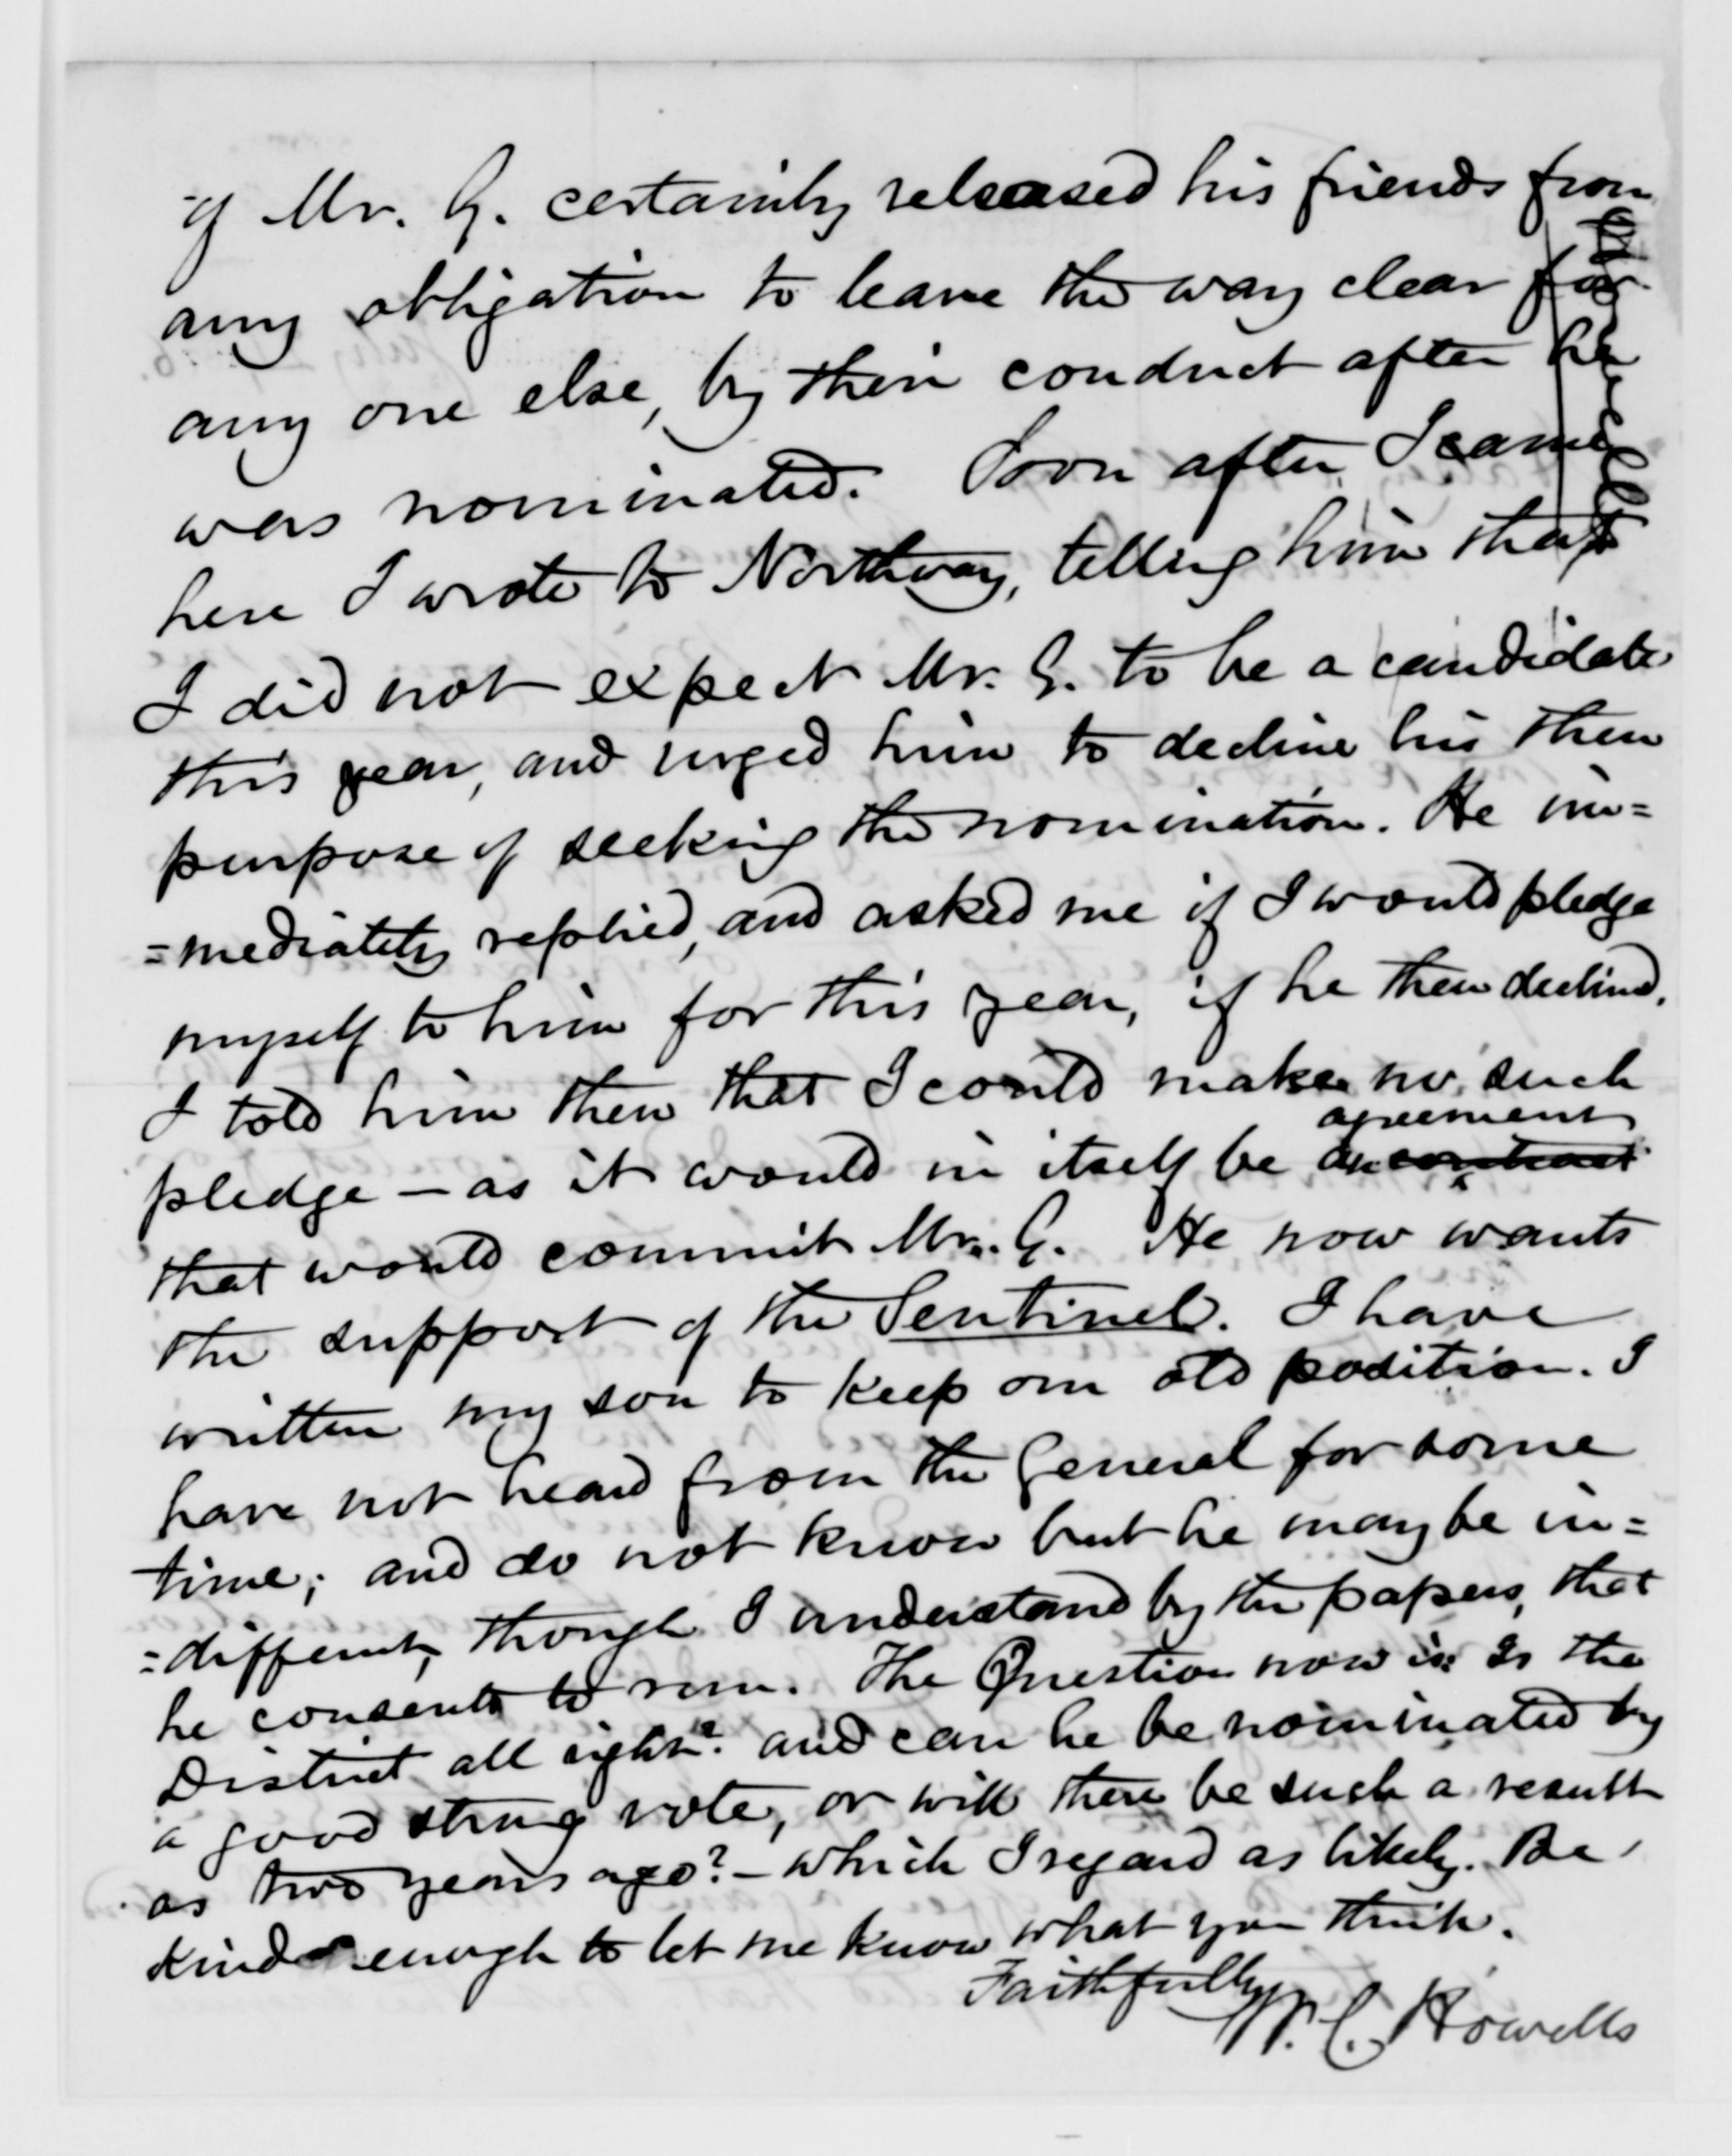 of Mr. G. certainly released his friends from
any obligation to leave the way clear for
any one else, by their conduct after he
was nominated. Soon after I came
here I wrote to Northway, telling him that
I did not expect Mr. G. to be a candidate
this year, and urged him to decline his then
purpose of seeking the nomination. He im=
=mediately replied, and asked me if I would pledge
myself to him for this year, if he then declined.
I told him then that I could make no such
agreement
pledge — as it would in itself be an contract
that would commit Mr. G. He now wants
the support of the Sentinel. I have
written my son to keep our old position. I
have not heard from the General for some
time; and do not know but he may be in=
=different, though I understand by the papers, that
he consents to run. The Question now is: Is the
District all right? and can he be nominated by
a good strong vote, or will there be such a result
as two years ago? — which I regard as likely. Be
kind enough to let me know what you think.
Faithfully
W. C. Howells